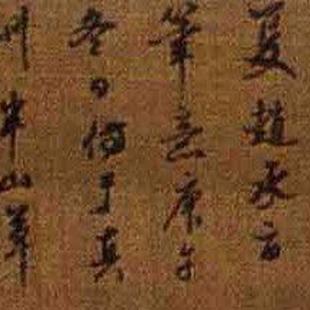 夏趙承旨
筆意庚午
冬日偶于真
州半山草